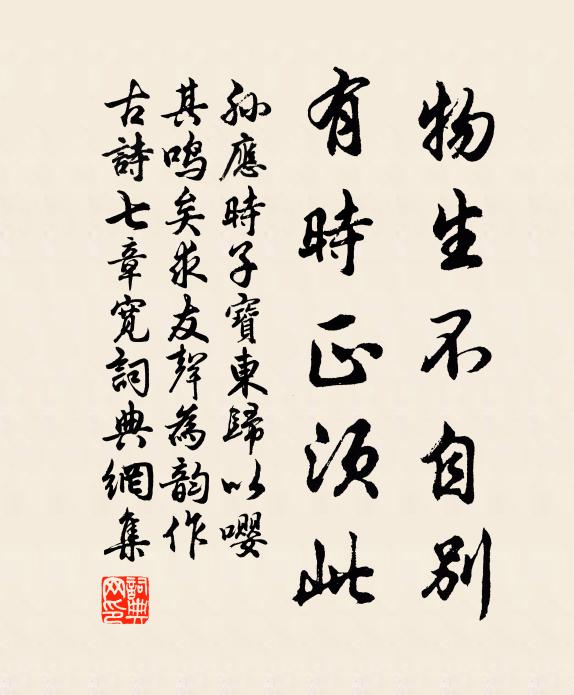 物生不自别
有時正須此
孫應時子寶東歸以嚶
其鳴矣求友聲為韵作
古詩七章寬詞典網集
詞典网印